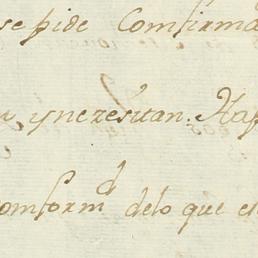 se pide Comfirma
yneresitan. Has
comformd delo que es